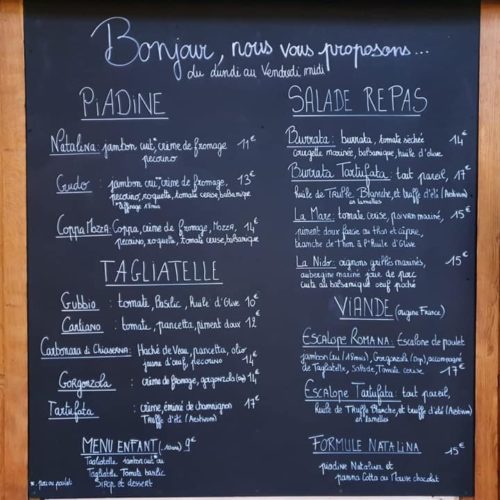 Bonjour, nous vous proposons...
du Lundi au Vendredi midi
PIADINE
Natalina : jambon cuit*, crème de fromage 11€
pecorino
Gudo : jambon cuit*, crème de fromage, 13€
pecorino, roquette, tomate cerise, balsamique
Coppa Mozza : Coppa, crème de fromage, Mozza, 14€
pecorino, roquette, tomate cerise, balsamique
TAGLIATELLE
Gubbio : tomate, Basilic, Huile d'Olive 10€
Carliano : tomate, pancetta, piment doux 12€
Carbonara di Chiaverna : Haché de Veau, pancetta, olio
jaune d'oeuf, pecorino 14€
Gorgonzola : crème de fromage, gorgonzola 14€
Tartufata : crème, émincé de champignon 17€
Truffe d'été (Aestivum)
MENU ENFANT (-10ans) 9€
Tagliatelle jambon cuit* ou
Tagliatelle Tomate basilic
Sirop et dessert
SALADE REPAS
Burrata : burrata, tomate séchée 14€
courgette marinée, balsamique, huile d'olive
Burrata Tartufata : tout pareil, 17€
Huile de Truffe Blanche, et truffe d'été (Aestivum)
en lamelles
La Mare : tomate cerise, poivron mariné, 15€
piment doux farcie au thon et câpre,
blanche de thon à l'Huile d'Olive
La Nido : oignons grillés marinés, 15€
aubergine marinée, joue de porc
cuite au balsamique oeuf poché
VIANDE (origine France)
Escalope Romana : Escalope de poulet
jambon cru (18mois), Gorgonzola, accompagné
de Tagliatelle, Salade, Tomate cerise 17€
Escalope Tartufata : tout pareil,
Huile de Truffe Blanche, et truffe d'été (Aestivum)
en lamelles
FORMULE NATALINA 15€
piadina Natalina et
panna Cotta ou Mousse chocolat